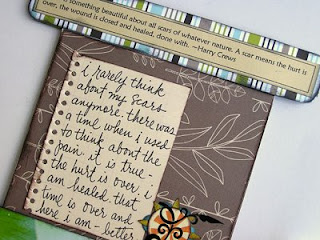 something beautiful about all scars of whatever nature. A scar means the hurt is
over, the wound is closed and healed, done with. ~Harry Crews
i rarely think
about my scars
anymore. there was
a time when i used
to think about the
pain. it is true -
the hurt is over. i
am healed. that
time is over and
here i am - better